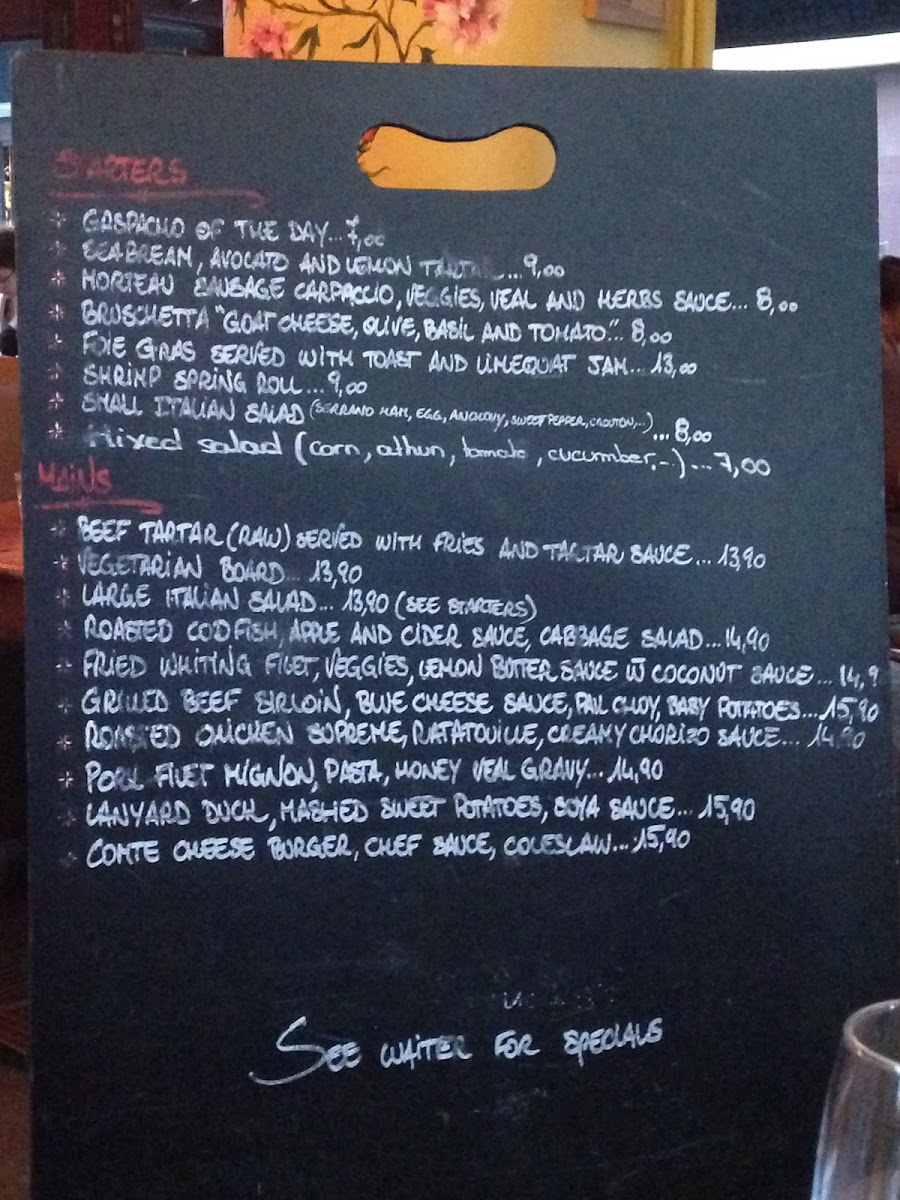 STARTERS
* GASPACHO OF THE DAY...7,00
* SEABREAM, AVOCATO AND LEMON TARTAR...9,00
* MORTEAU SAUSAGE CARPACCIO, VEGGIES, VEAL AND HERBS SAUCE... 8,00
* BRUSCHETTA "GOAT CHEESE, OLIVE, BASIL AND TOMATO"... 8,00
* FOIE GRAS SERVED WITH TOAST AND LIMEQUAT JAM... 13,00
* SHRIMP SPRING ROLL...9,00
* SMALL ITALIAN SALAD (SERRANO HAM, EGG, ANCHOVY, SWEET PEPPER, CROUTON,...)...8,00
* Mixed salad (corn, athun, tomato, cucumber,...)...7,00
MAINS
* BEEF TARTAR (RAW) SERVED WITH FRIES AND TARTAR SAUCE... 13,90
* VEGETARIAN BOARD... 13,90
* LARGE ITALIAN SALAD... 13,90 (SEE STARTERS)
* ROASTED CODFISH, APPLE AND CIDER SAUCE, CABBAGE SALAD...14,90
* FRIED WHITING FILET, VEGGIES, LEMON BUTTER SAUCE W COCONUT SAUCE... 14,9
* GRILLED BEEF SIRLOIN, BLUE CHEESE SAUCE, PAK CHOY, BABY POTATOES...15,90
* ROASTED CHICKEN SUPREME, RATATOUILLE, CREAMY CHORIZO SAUCE... 14,90
* PORK FILET MIGNON, PASTA, HONEY VEAL GRAVY... 14,90
* LANYARD DUCK, MASHED SWEET POTATOES, SOYA SAUCE... 15,90
* COMTE CHEESE BURGER, CHEF SAUCE, COLESLAW...15,90
SEE WAITER FOR SPECIALS